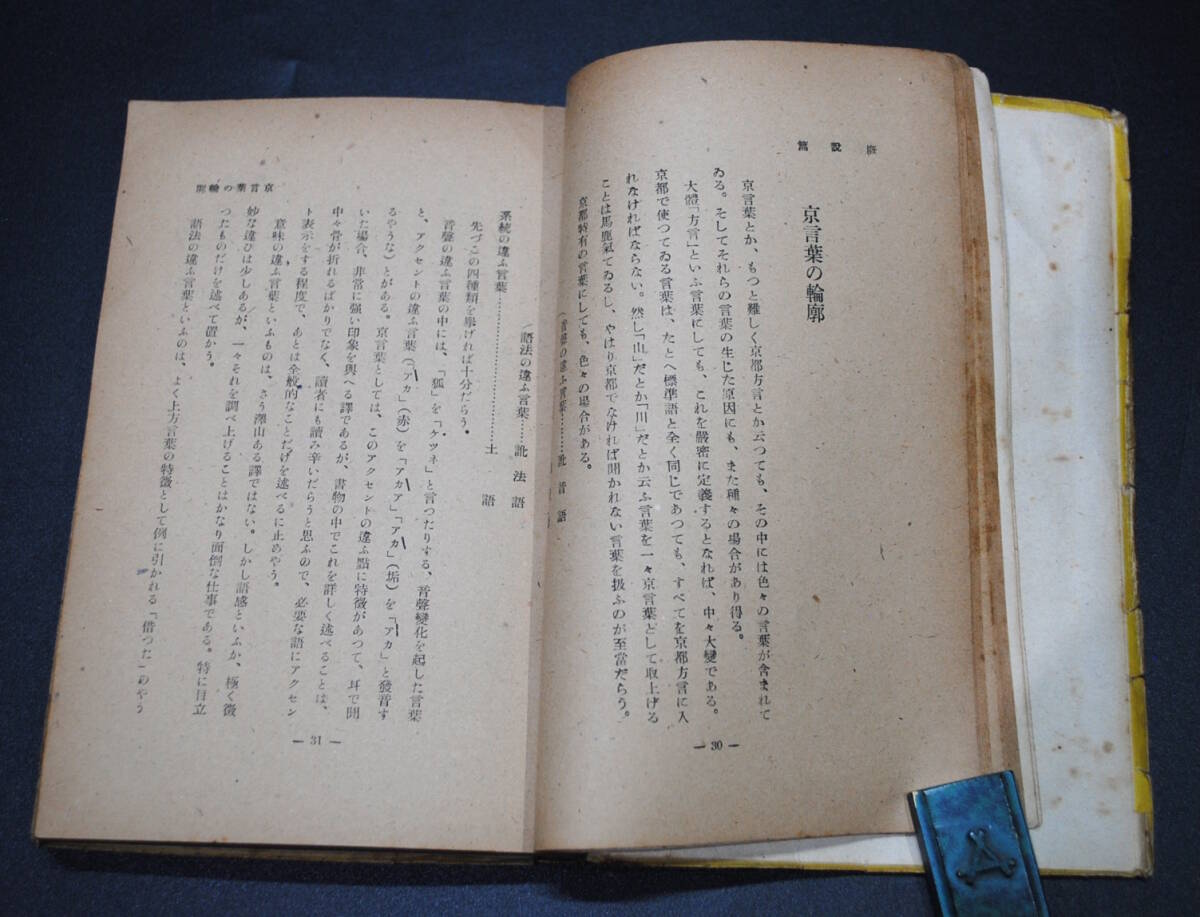 概說篇
京言葉の輪廓
京言葉とか、もつと難しく京都方言とか云つても、その中には色々の言葉が含まれて
ゐる。そしてそれらの言葉の生じた原因にも、また種々の場合があり得る。
大體「方言」といふ言葉にしても、これを嚴密に定義するとなれば、中々大變である。
京都で使つてゐる言葉は、たとへ標準語と全く同じであつても、すべてを京都方言に入
れなければならない。然し「山」だとか「川」だとか云ふ言葉を一々京言葉として取上げる
ことは馬鹿氣てゐるし、やはり京都でなければ聞かれない言葉を扱ふのが至當だらう。
京都特有の言葉にしても、色々の場合がある。
音聲の違ふ言葉………訛音語
— 30 —
京言葉の輪廓
語法の違ふ言葉………訛法語
系統の違ふ言葉………土語
先づこの四種類を擧げれば十分だらう。
音聲の違ふ言葉の中には、「狐」を「ケツネ」と言つたりする、音聲變化を起した言葉
と、アクセントの違ふ言葉(「アカ」(赤)を「アカア」「アカ」(垢)を「アカ」と發音す
るやうな)とがある。京言葉としては、このアクセントの違ふ點に特徵があつて、耳で聞
いた場合、非常に强い印象を與へる譯であるが、書物の中でこれを詳しく述べることは、
中々骨が折れるばかりでなく、讀者にも讀み辛いだらうと思ふので、必要な語にアクセン
ト表示をする程度で、あとは全般的なことだけを述べるに止めやう。
意味の違ふ言葉といふものは、さう澤山ある譯ではない。しかし語感といふか、極く微
妙な違ひは少しあるが、一々それを調べ上げることはかなり面倒な仕事である。特に目立
つたものだけを述べて置かう。
語法の違ふ言葉といふのは、よく上方言葉の特徵として例に引かれる「借つた」のやう
— 31 —